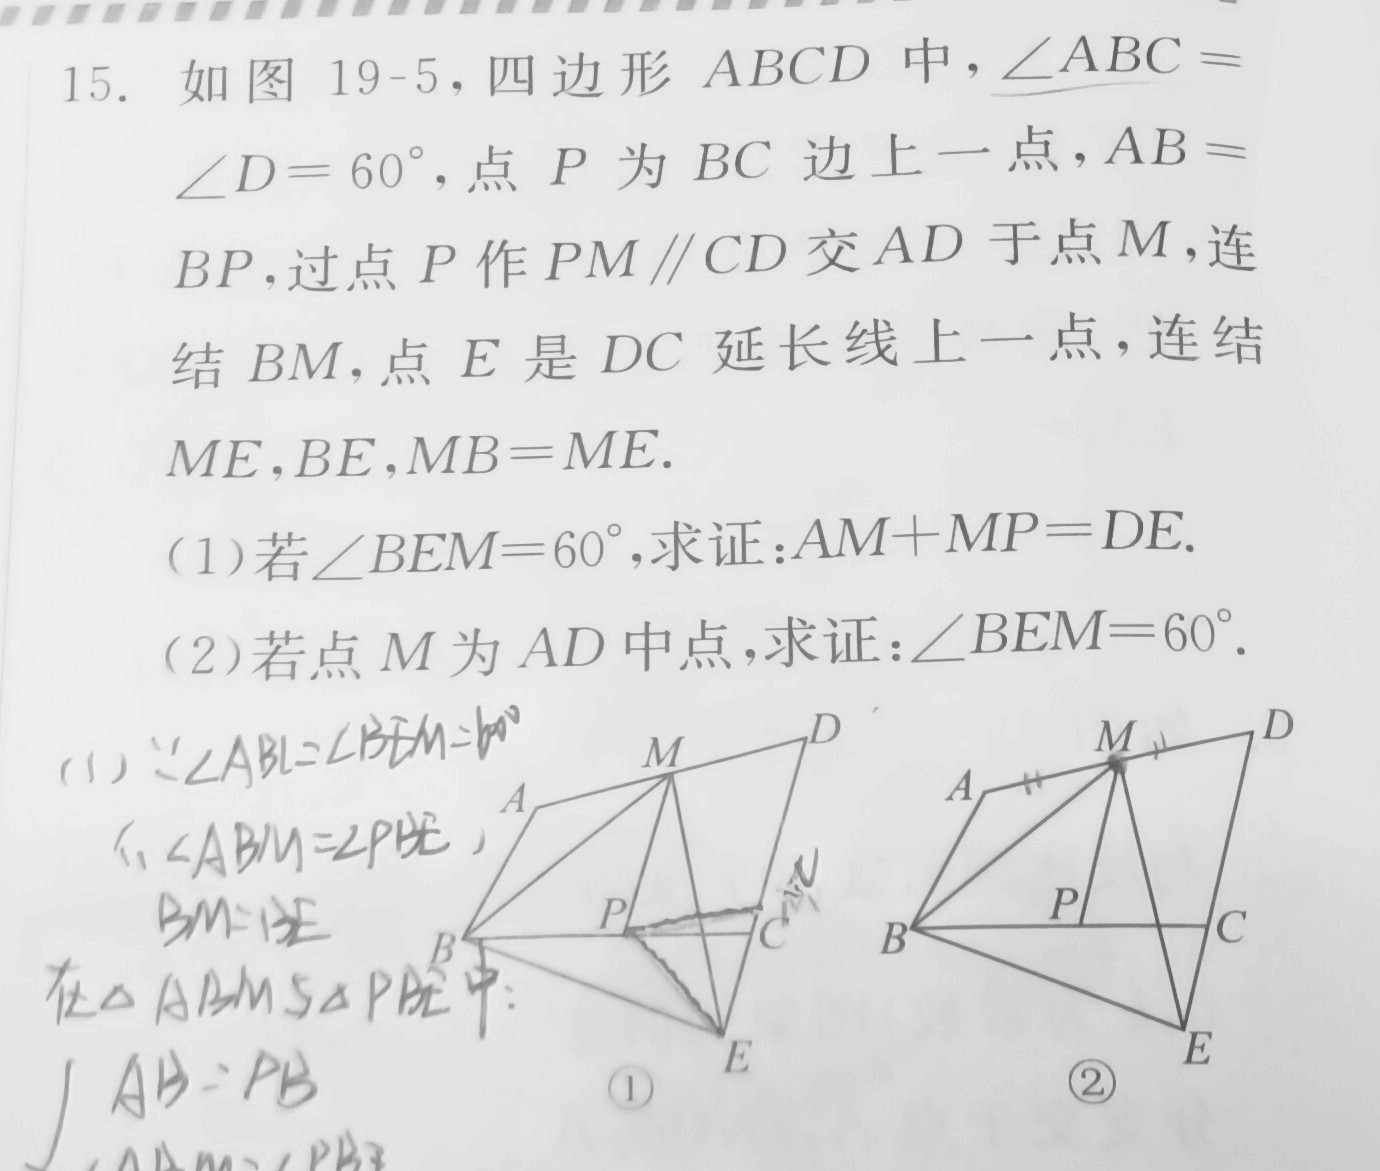 15. 如图 19-5,四边形 ABCD 中,∠ABC=
∠D=60°,点 P 为 BC 边上一点,AB=
BP,过点 P 作 PM∥CD 交 AD 于点 M,连
结 BM,点 E 是 DC 延长线上一点,连结
ME,BE,MB=ME.
(1)若∠BEM=60°,求证:AM+MP=DE.
(2)若点 M 为 AD 中点,求证:∠BEM=60°.
(1)∵∠ABC=∠BEM=60°
∴∠ABM=∠PBE,
BM=BE
在△ABM与△PBE中:
AB=PB
∠ABM=∠PBE
A
M
D
B
P
C
E
①
A
M
D
B
P
C
E
②